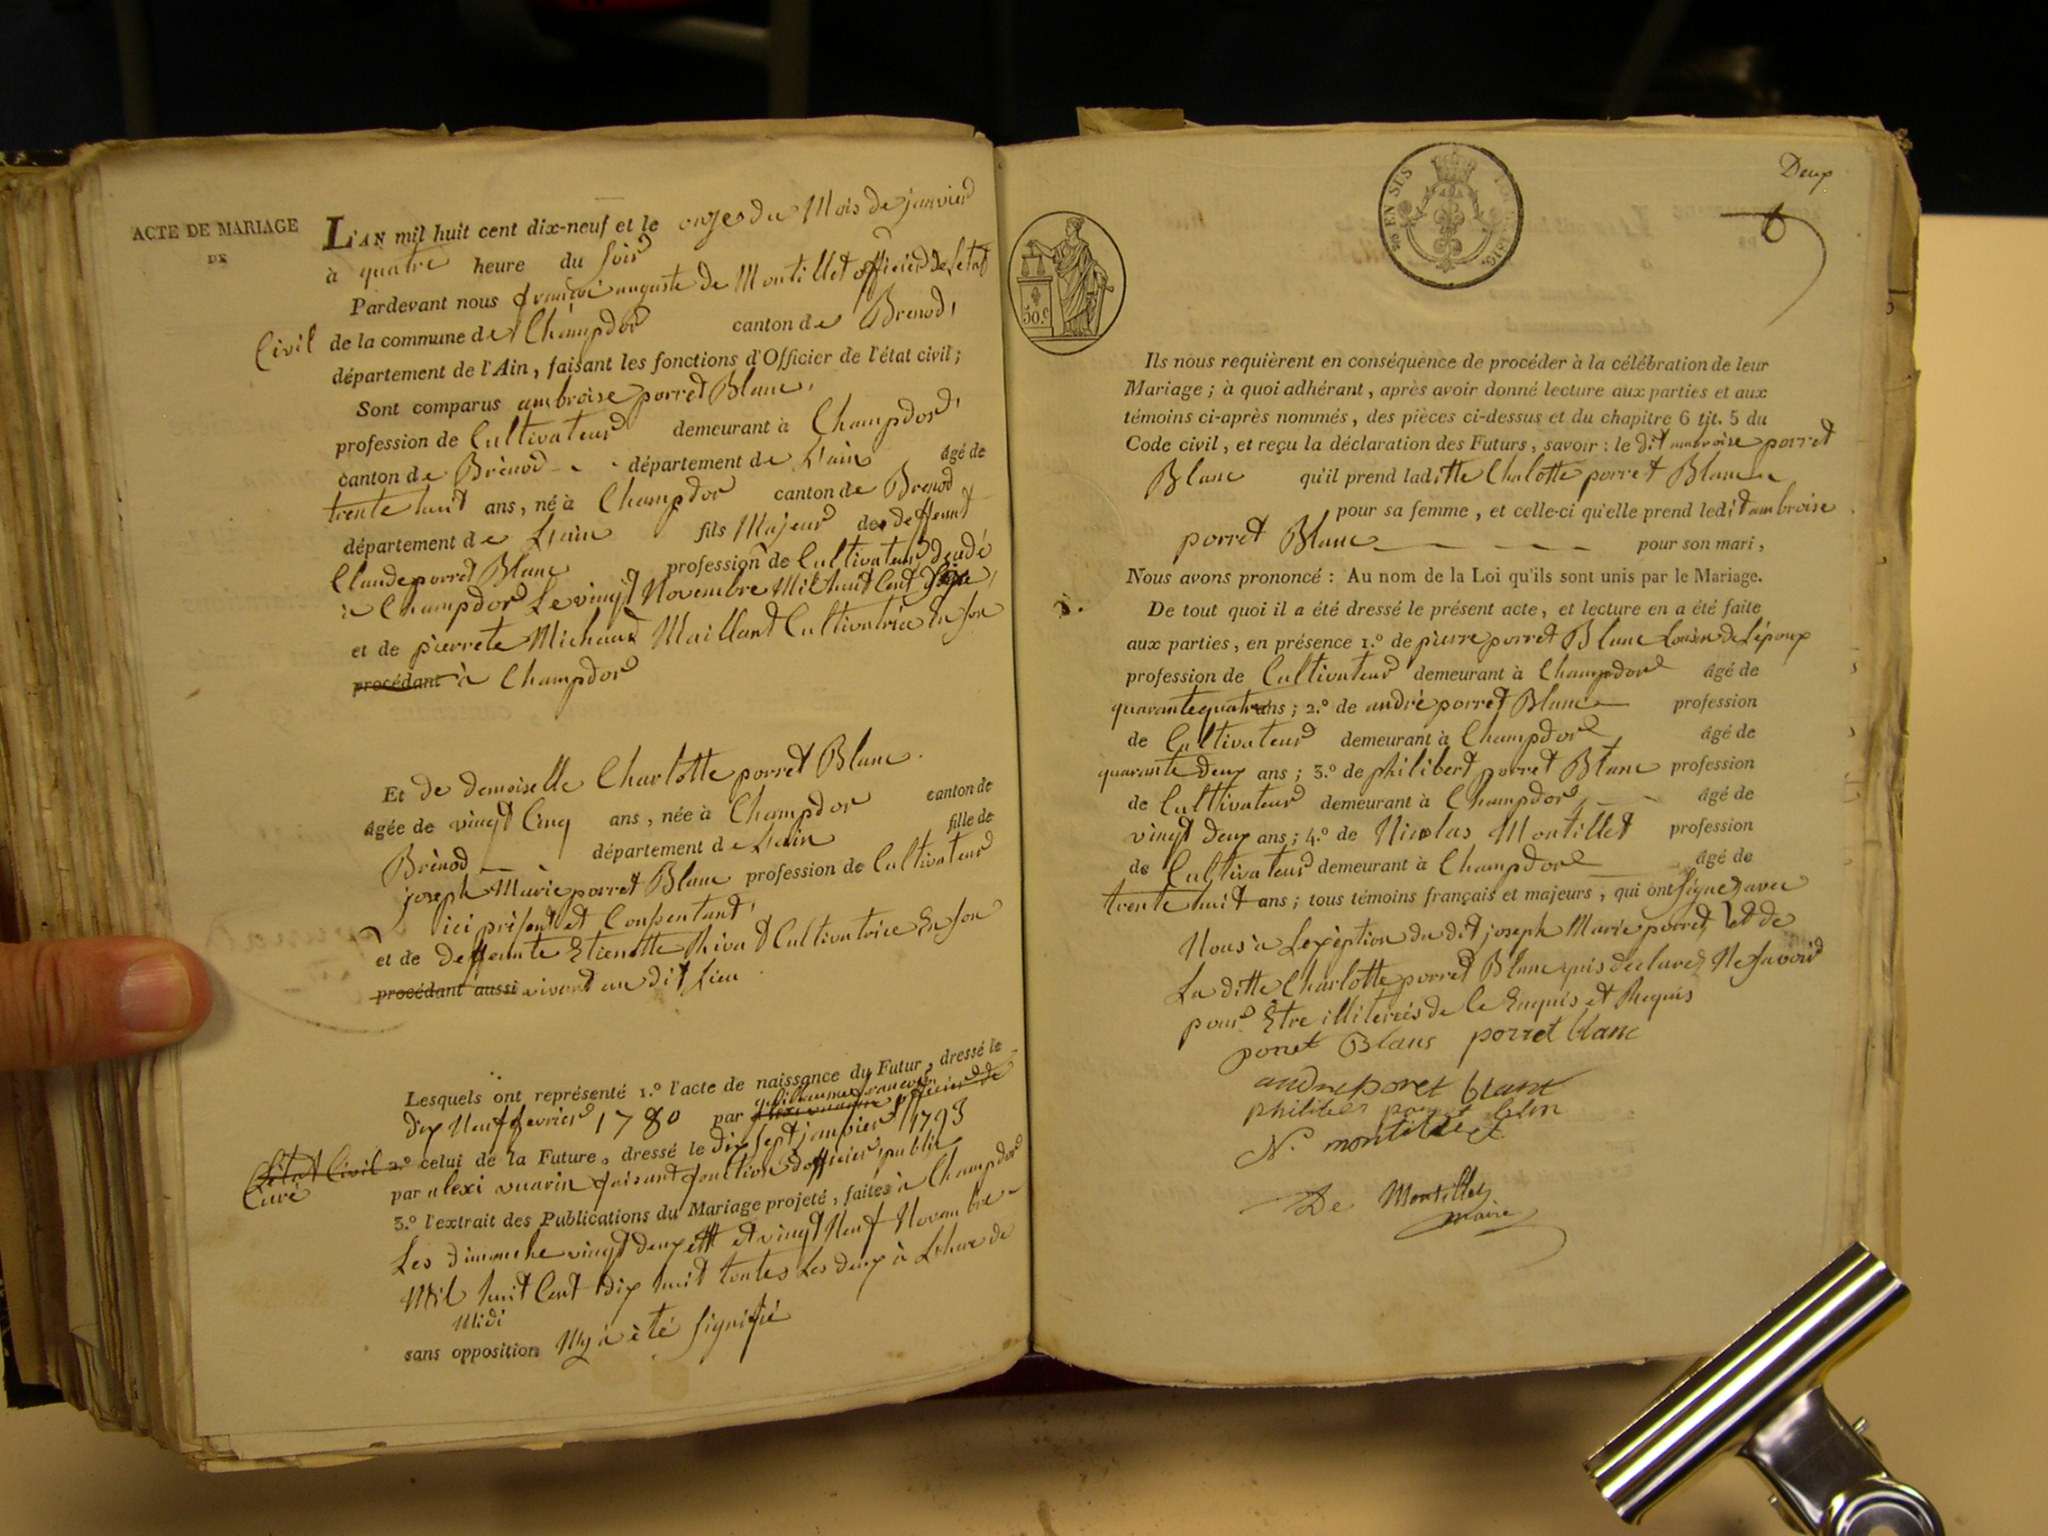 ACTE DE MARIAGE
DE
L'AN mil huit cent dix-neuf et le onze du Mois de janvier
à quatre heure du soir
Pardevant nous françoi auguste de Montillet officier de Letat
Civil de la commune de Champdor canton de Brenod,
département de l'Ain, faisant les fonctions d'Officier de l'état civil;
Sont comparus ambroise porret Blanc,
profession de Cultivateur demeurant à Champdor,
canton de Brénod département de L'ain âgé de
trente huit ans, né à Champdor canton de Brenod
département de L'ain fils Majeur de deffeunt
Claude porret Blanc profession de Cultivateur deudé
à Champdor Le vingt Novembre Mil huit Cent
et de pierrete Michaud Maillard Cultivatrice En son
procédant à Champdor
Et de demoiselle Charlotte porret Blanc.
âgée de vingt Cinq ans, née à Champdor canton de
Brénod département de L'ain fille de
joseph Marie porret Blanc profession de Cultivateur
ici présent et Consentant,
et de deffeunte Etienette Rivat Cultivatrice En son
procédant aussi vivant au dit Lieu
Lesquels ont représenté 1.º l'acte de naissance du Futur, dressé le
guillaume francois
dix Neuf fevrier 1780 par alexi vuarin officier de
Letat Civil 2.º celui de la Future, dressé le dix sept janvier 1793
Curé par alexi vuarin faisant fonction d'officier public
3.º l'extrait des Publications du Mariage projeté, faites à Champdor
Les dimanche vingt deux et vingt Neuf Novembre
Mil huit Cent dix huit toutes Les deux à Lheure de
Midi
sans opposition Ny a été signifié
Deux
50.c
Ils nous requièrent en conséquence de procéder à la célébration de leur
Mariage; à quoi adhérant, après avoir donné lecture aux parties et aux
témoins ci-après nommés, des pièces ci-dessus et du chapitre 6 tit. 5 du
Code civil, et reçu la déclaration des Futurs, savoir: le dit ambroise porret
Blanc qu'il prend laditte Charlotte porret Blanc
pour sa femme, et celle-ci qu'elle prend ledit ambroise
porret Blanc pour son mari,
Nous avons prononcé: Au nom de la Loi qu'ils sont unis par le Mariage.
De tout quoi il a été dressé le présent acte, et lecture en a été faite
aux parties, en présence 1.º de pierre porret Blanc Cousin de L'époux
profession de Cultivateur demeurant à Champdor âgé de
quarante quatre ans; 2.º de andré porret Blanc profession
de Cultivateur demeurant à Champdor âgé de
quarante deux ans; 3.º de philibert porret Blanc profession
de Cultivateur demeurant à Champdor, âgé de
vingt deux ans; 4.º de Nicolas Montillet profession
de Cultivateur demeurant à Champdor âgé de
trente huit ans; tous témoins français et majeurs, qui ont signez avec
Nous à Lexeption du dit joseph Marie porret et de
La ditte Charlotte porret Blanc quis declarez Ne savoir
pour Etre illiterés de Ce Enquis et Requis
porret Blanc porret blanc
andre poret blanc
philiber
N. montillet
De Montillet
maire